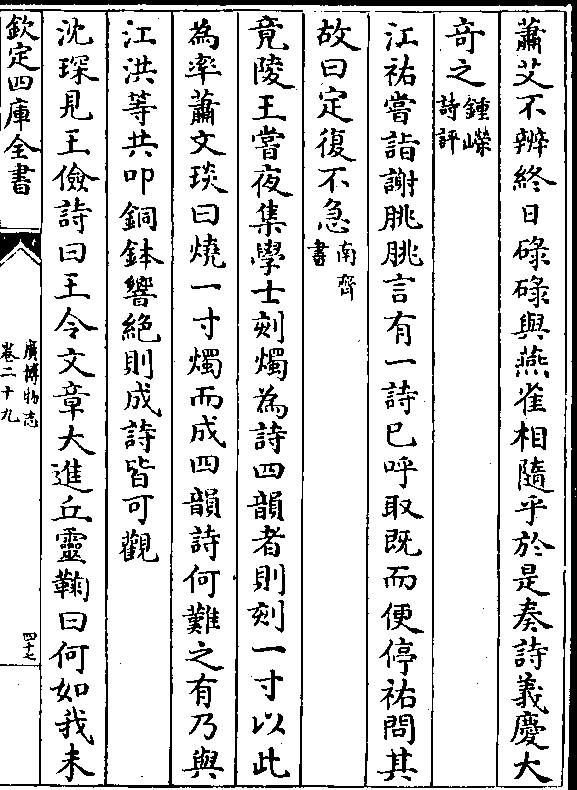 蕭艾不辨終日碌碌與燕雀相隨乎於是奏詩義慶大
奇之鍾嶸
詩評
江祐嘗詣謝朓朓言有一詩已呼取既而便停祐問其
故曰定復不急南齊
書
竟陵王嘗夜集學士刻燭為詩四韻者則刻一寸以此
為率蕭文琰曰燒一寸燭而成四韻詩何難之有乃與
江洪等共叩銅鉢響絕則成詩皆可觀
沈琛見王儉詩曰王令文章大進丘靈鞠曰何如我未
欽定四庫全書
廣博物志
卷二十九
四十七